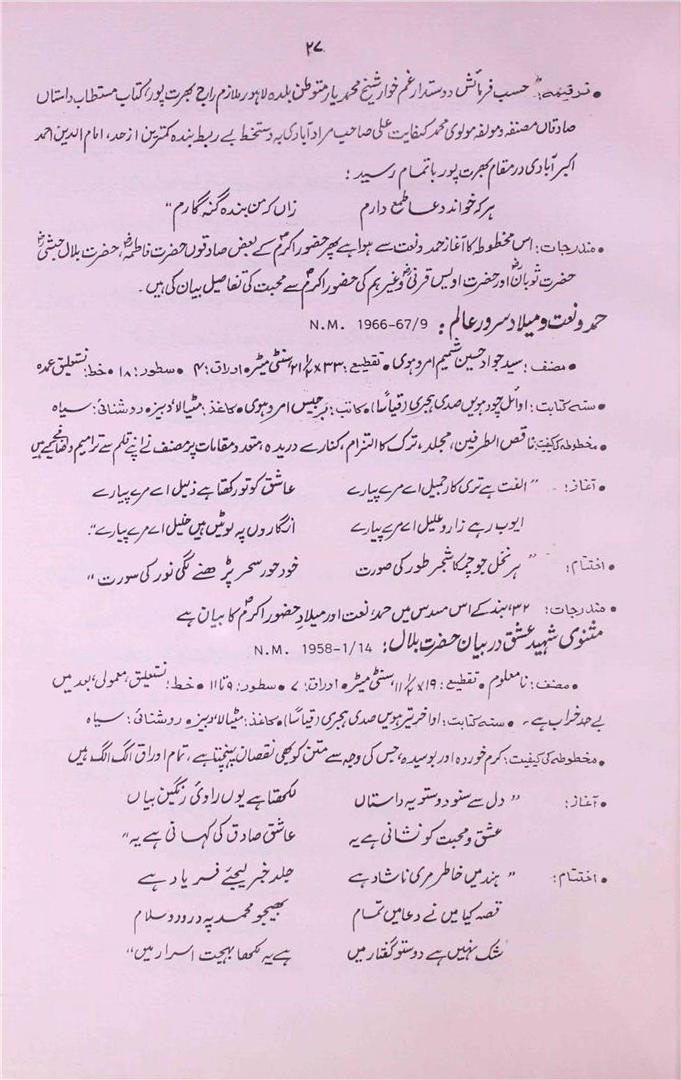 ۲۷
• ترقیمہ: "حسب فرمائش دوستدار غم خوار شیخ محمد یار متوطن بلدہ لاہور ملازم راجہ بھرت پور، کتاب مستطاب داستاں
صادقاں مصنفہ و مولفہ مولوی محمد کفایت علی صاحب مراد آبادی بہ دستخط بے ربط بندہ کمترین از حد، امام الدین احمد
اکبر آبادی در مقام بھرت پور باتمام رسید:
ہر کہ خواند دعا طمع دارم زاں کہ من بندہ گنہ گارم"
• مندرجات: اس مخطوطہ کا آغاز حمد و نعت سے ہوا ہے پھر حضور اکرمؐ کے بعض صادقوں حضرت فاطمہؓ، حضرت بلال حبشیؓ
حضرت ثوبانؓ اور حضرت اویس قرنیؓ وغیرہم کی حضور اکرمؐ سے محبت کی تفاصیل بیان کی ہیں۔
حمد و نعت و میلاد سرور عالم: N.M. 1966-67/9
• مصنف: سید جواد حسین شمیم امروہوی • تقطیع: ۳۳×۲۱/۲ سنٹی میٹر • اوراق: ۴ • سطور: ۱۸ • خط: نستعلیق عمدہ
• سنہ کتابت: اوائل چودہویں صدی ہجری (قیاساً) • کاتب: برجیس امروہوی • کاغذ: مٹیالا دبیز • روشنائی: سیاہ
• مخطوطہ کی کیفیت: ناقص الطرفین، مجلد، ترک کا التزام، کنارے دریدہ، متعدد مقامات پر مصنف نے اپنے قلم سے ترامیم و اضافے کیے ہیں
• آغاز: "الفت ہے تری کار جمیل اے مرے پیارے عاشق کو تو رکھتا ہے ذلیل اے مرے پیارے
ایوب رہے زار و علیل اے مرے پیارے انگاروں پہ لوٹیں ہیں خلیل اے مرے پیارے"۔
• اختتام: "ہر نخل جو چمکا شجر طور کی صورت خود حور سحر پڑھنے لگی نور کی سورت"
• مندرجات: ۳۲ بند کے اس مسدس میں حمد، نعت اور میلادِ حضور اکرمؐ کا بیان ہے
مثنوی شہید عشق در بیان حضرت بلال: N.M. 1958-1/14
• مصنف: نامعلوم • تقطیع: ۱۹×۱۱/۲ سنٹی میٹر • اوراق: ۷ • سطور: ۹ تا ۱۱ • خط: نستعلیق، معمولی، بعد میں
بے حد خراب ہے۔ • سنہ کتابت: اواخر تیرہویں صدی ہجری (قیاساً) • کاغذ: مٹیالا دبیز • روشنائی: سیاہ
• مخطوطہ کی کیفیت: کرم خوردہ اور بوسیدہ، جس کی وجہ سے متن کو بھی نقصان پہنچتا ہے، تمام اوراق الگ الگ ہیں
• آغاز: "دل سے سنو دوستو یہ داستاں لکھتا ہے یوں راویٔ رنگین بیاں
عشق و محبت کو نشانی ہے یہ عاشق صادق کی کہانی ہے یہ"
• اختتام: "ہند میں خاطر مری ناشاد ہے جلد خبر لیجئے فریاد ہے
قصہ کیا میں نے دعا میں تمام بھیجو محمد پہ درود و سلام
شک نہیں ہے دوستو گفتار میں ہے یہ لکھا بہجت اسرار میں"